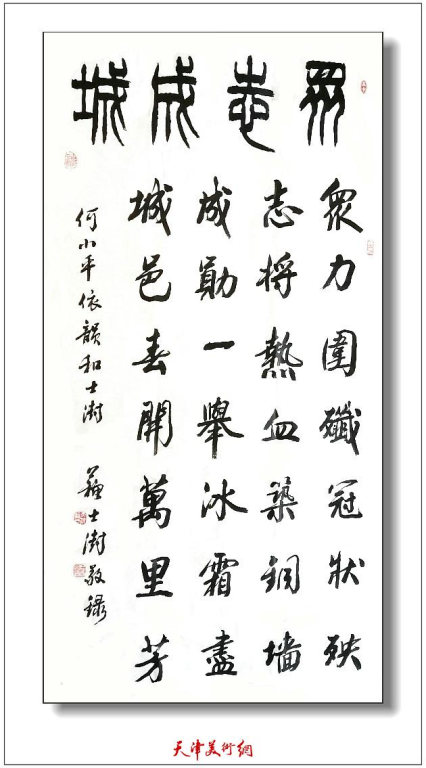 眾志成城
眾力圍殲冠狀殃
志将熱血築銅墙
成勛一舉冰霜盡
城邑春開萬里芳
何小平依韻和士澍 蘇士澍敬録
天津美術網